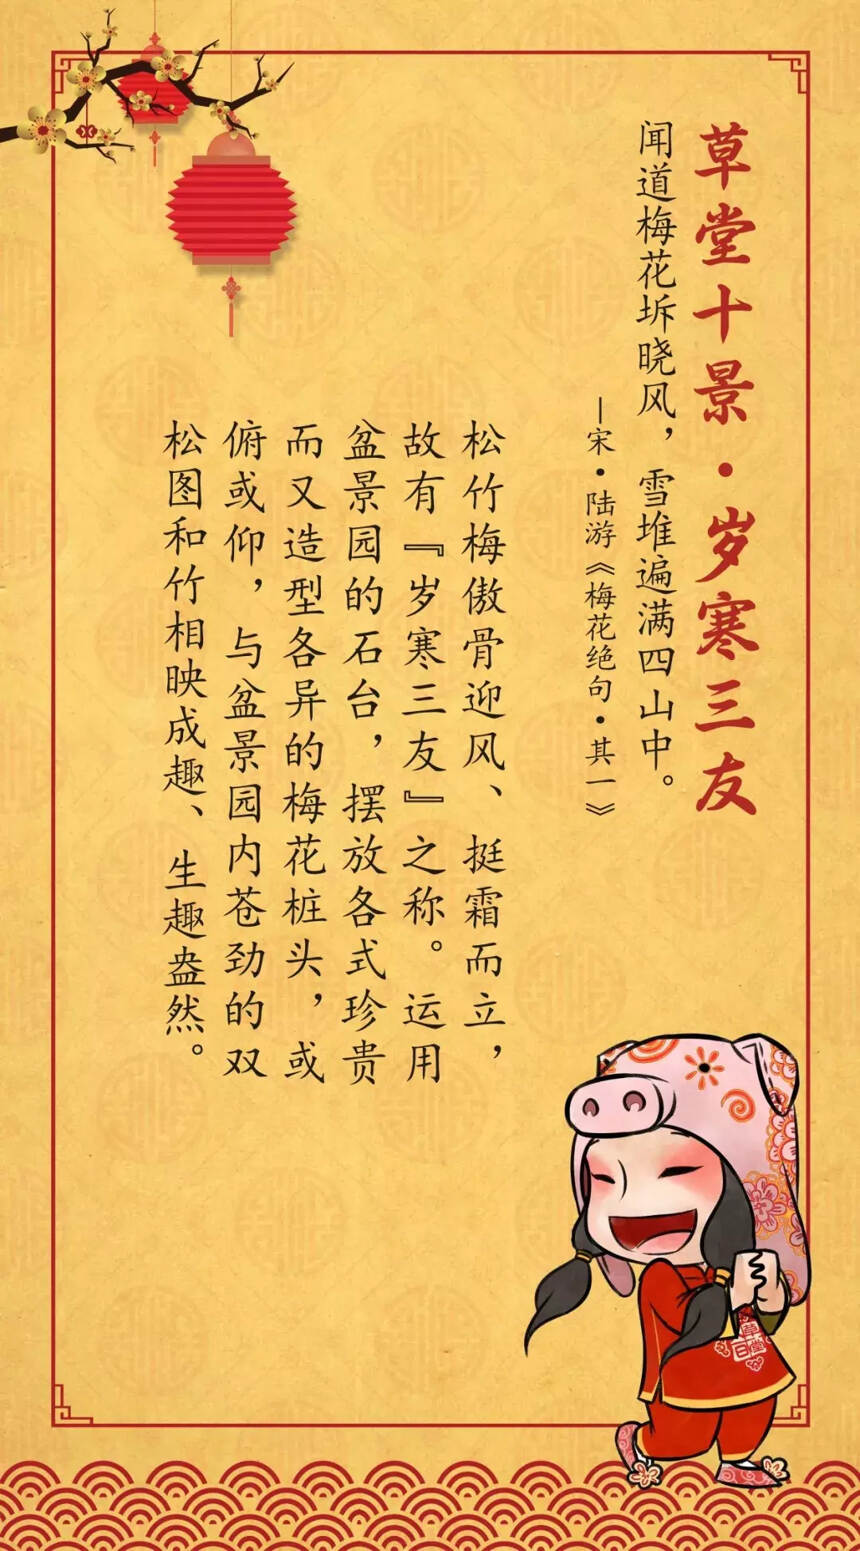 草堂十景·岁寒三友
闻道梅花坼晓风，雪堆遍满四山中。
—宋·陆游《梅花绝句·其一》
松竹梅傲骨迎风、挺霜而立，
故有『岁寒三友』之称。运用
盆景园的石台，摆放各式珍贵
而又造型各异的梅花桩头，或
俯或仰，与盆景园内苍劲的双
松图和竹相映成趣、生趣盎然。